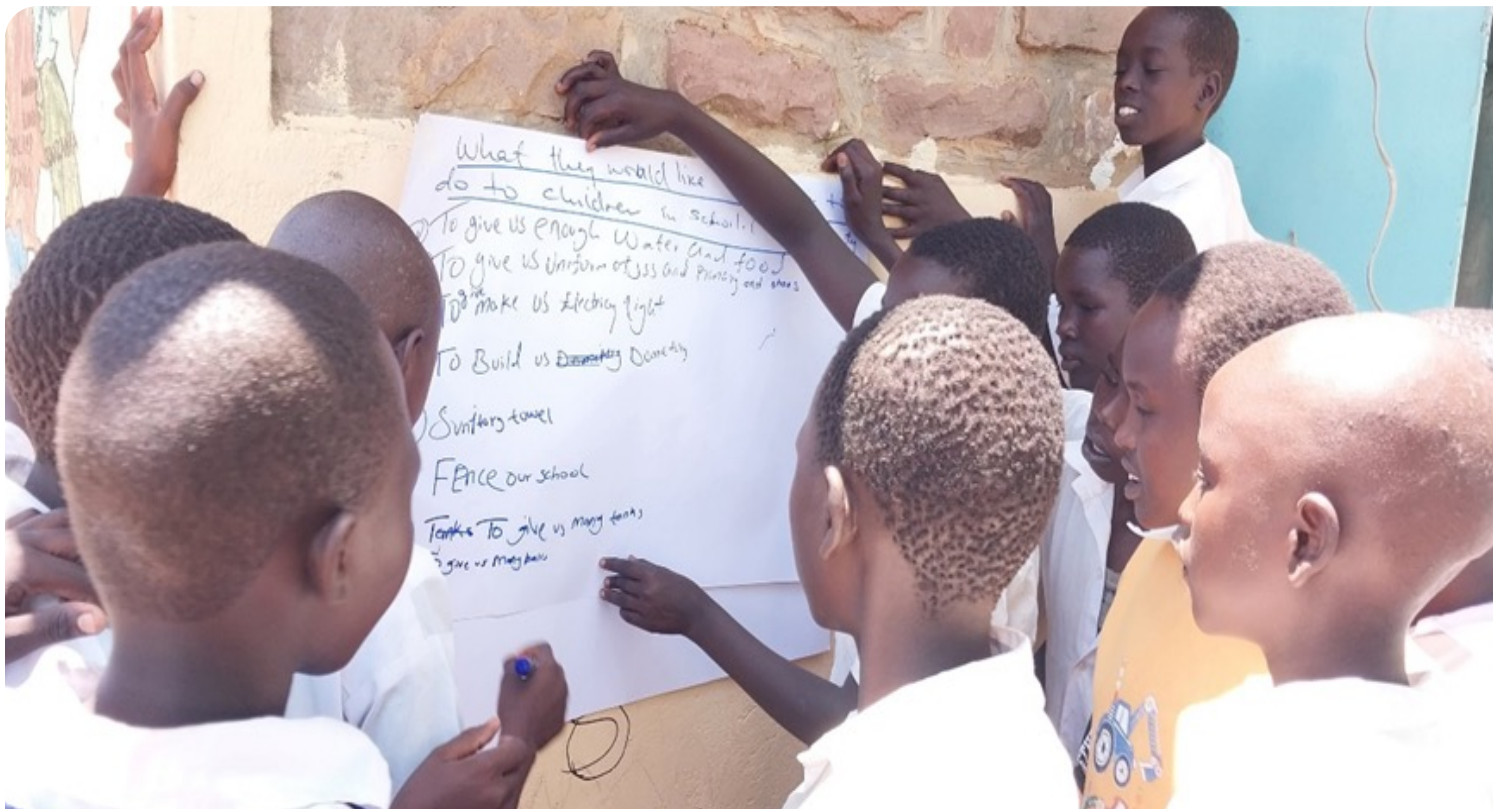 What they would like
do to children in school.
To give us enough Water and food
To give us Uniform of JSS and Primary and shoes
To give make us Electricy light
To Build us Dometry
Sanitary towel
FEnce our school
Tanks To give us many tanks
give us Many